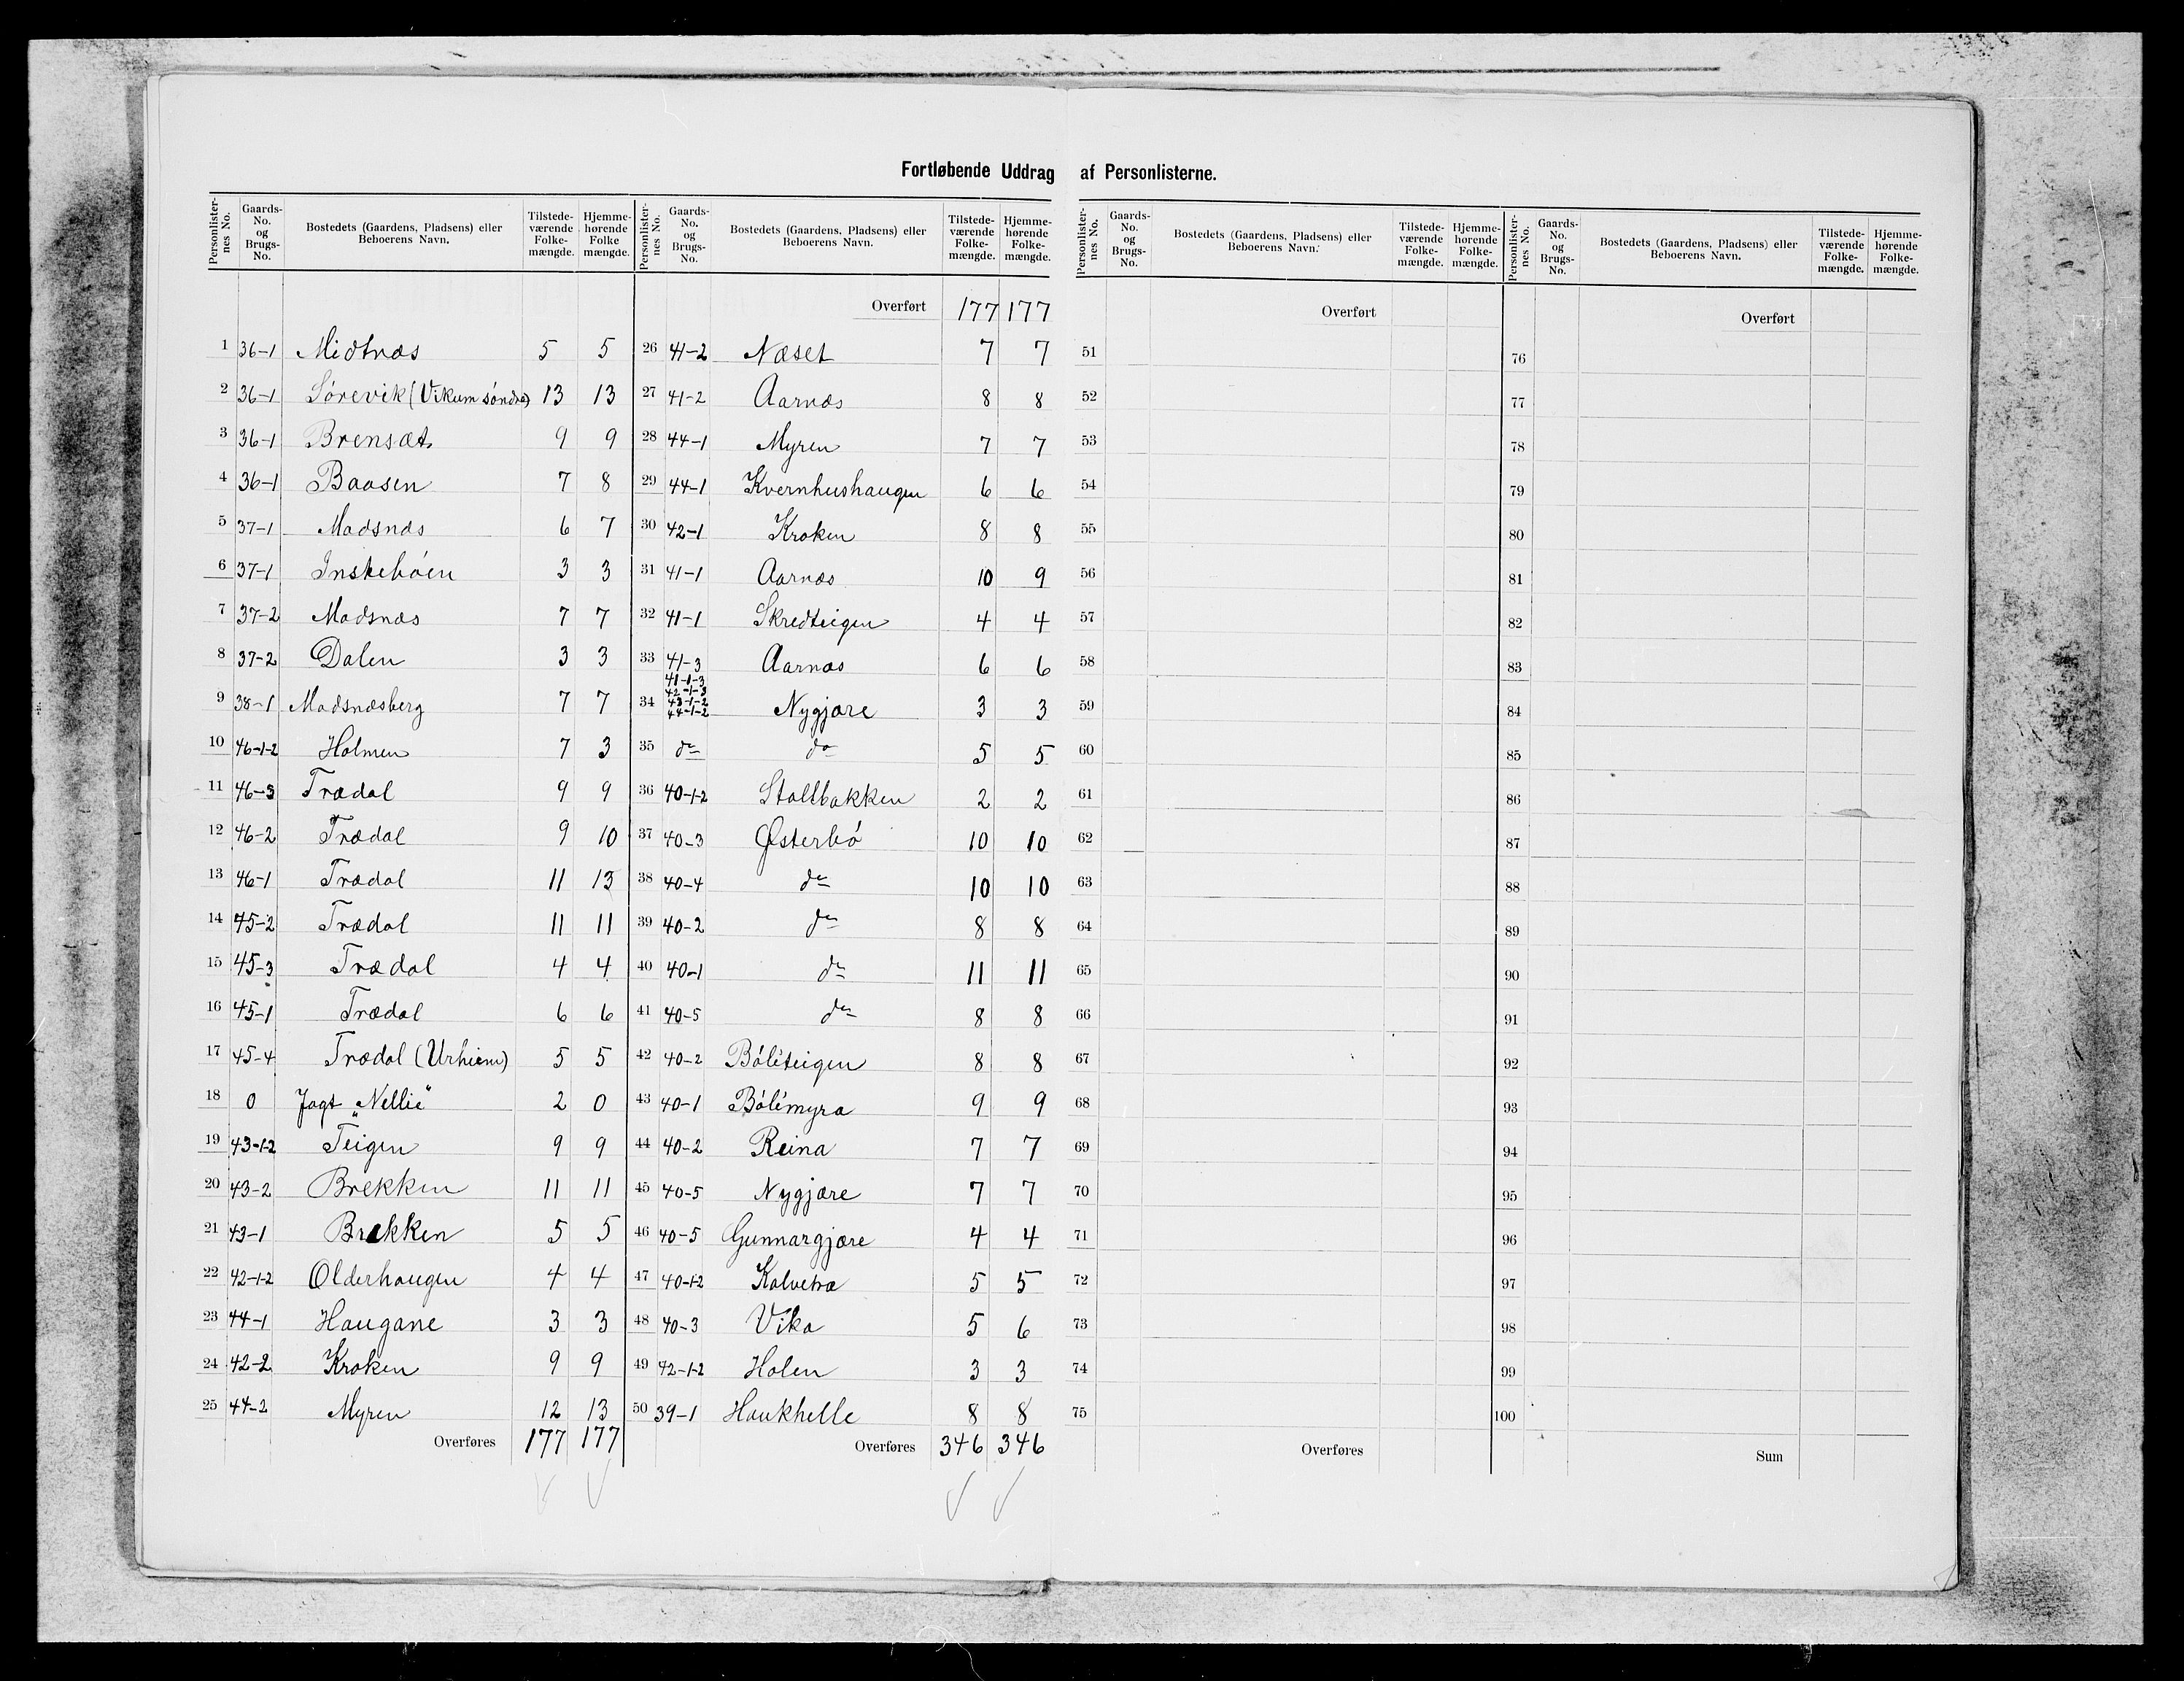 Fortløbende Uddrag af Personlisterne.
Personlisternes No. Gaards-No. og Brugs-No. Bostedets (Gaardens, Pladsens) eller Beboerens Navn. Tilstedeværende Folkemængde. Hjemmehørende Folkemængde.
1 36-1 Midtnæs 5 5
2 36-1 Sørevik (Vikum søndre) 13 13
3 36-1 Brensæt 9 9
4 36-1 Baasen 7 8
5 37-1 Madsnæs 6 7
6 37-1 Inskebøen 3 3
7 37-2 Madsnæs 7 7
8 37-2 Dalen 3 3
9 38-1 Madsnæsberg 7 7
10 46-1-2 Holmen 7 3
11 46-3 Trædal 9 9
12 46-2 Trædal 9 10
13 46-1 Trædal 11 13
14 45-2 Trædal 11 11
15 45-3 Trædal 4 4
16 45-1 Trædal 6 6
17 45-4 Trædal (Urhiem) 5 5
18 0 Jagt „Nellie" 2 0
19 43-1-2 Teigen 9 9
20 43-2 Brekken 11 11
21 43-1 Brekken 5 5
22 42-1-2 Olderhaugen 4 4
23 44-1 Haugane 3 3
24 42-2 Kroken 9 9
25 44-2 Myren 12 13
Overføres 177 177
Personlisternes No. Gaards-No. og Brugs-No. Bostedets (Gaardens, Pladsens) eller Beboerens Navn. Tilstedeværende Folkemængde. Hjemmehørende Folkemængde.
Overført 177 177
26 41-2 Næset 7 7
27 41-2 Aarnæs 8 8
28 44-1 Myren 7 7
29 44-1 Kvernhushaugen 6 6
30 42-1 Kroken 8 8
31 41-1 Aarnæs 10 9
32 41-1 Skredteigen 4 4
33 41-3 Aarnæs 6 6
41-1-3
42-1-3
34 43-1-2 Nygjære 3 3
44-1-2
35 do do 5 5
36 40-1-2 Stallbakken 2 2
37 40-3 Østerbø 10 10
38 40-4 do 10 10
39 40-2 do 8 8
40 40-1 do 11 11
41 40-5 do 8 8
42 40-2 Bøliteigen 8 8
43 40-1 Bølimyra 9 9
44 40-2 Reina 7 7
45 40-5 Nygjære 7 7
46 40-5 Gunnargjære 4 4
47 40-1-2 Kalvetræ 5 5
48 40-3 Vika 5 6
49 42-1-2 Holen 3 3
50 39-1 Haukhelle 8 8
Overføres 346 346
Personlisternes No. Gaards-No. og Brugs-No. Bostedets (Gaardens, Pladsens) eller Beboerens Navn. Tilstedeværende Folkemængde. Hjemmehørende Folkemængde.
Overført
51
52
53
54
55
56
57
58
59
60
61
62
63
64
65
66
67
68
69
70
71
72
73
74
75
Overføres
Personlisternes No. Gaards-No. og Brugs-No. Bostedets (Gaardens, Pladsens) eller Beboerens Navn. Tilstedeværende Folkemængde. Hjemmehørende Folkemængde.
Overført
76
77
78
79
80
81
82
83
84
85
86
87
88
89
90
91
92
93
94
95
96
97
98
99
100
Sum